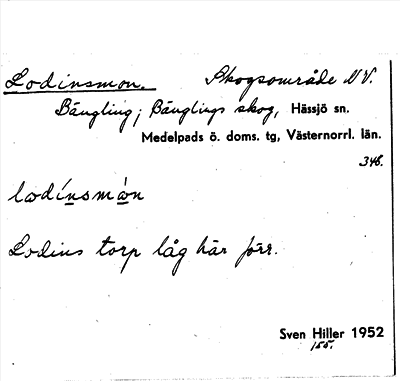 Lodinsmon. Skogsområde NV.
Bängling; Bänglings skog, Hässjö sn.
Medelpads ö. doms. tg, Västernorrl. län.
346.
lodínsmȧ̀n
Lodins torp låg här förr.
Sven Hiller 1952
155.